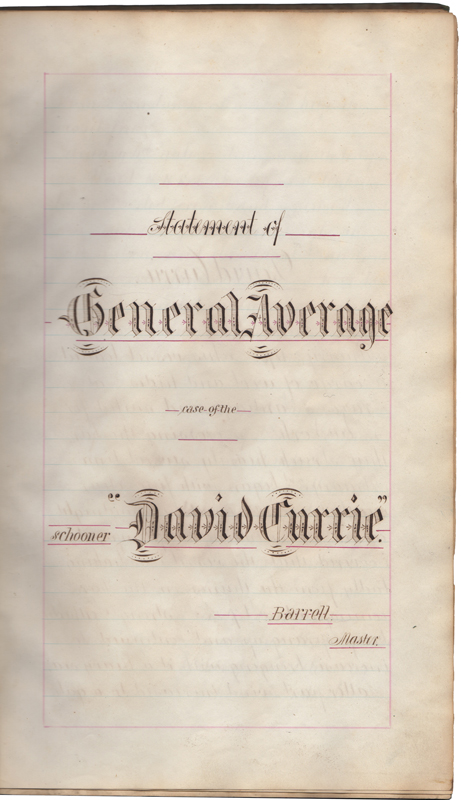 Statement of
General Average
case of the
schooner "David Currie".
Barrett
Master.